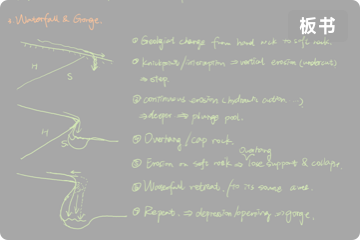 Waterfall & Gorge.
板书
① Geological change from hard rock → soft rock.
H
S
② knickpoint / interruption ⇒ vertical erosion
⇒ steep
③ continuous erosion (hydraulic action ...)
⇒ deeper ⇒ plunge pool.
H
S
④ Overhang / cap rock.
Overhang
⑤ Erosion on soft rock ⇒ lose support & collapse.
⑥ Waterfall retreat / to its source area.
⑦ Repeat. ⇒ depression / opening ⇒ gorge.